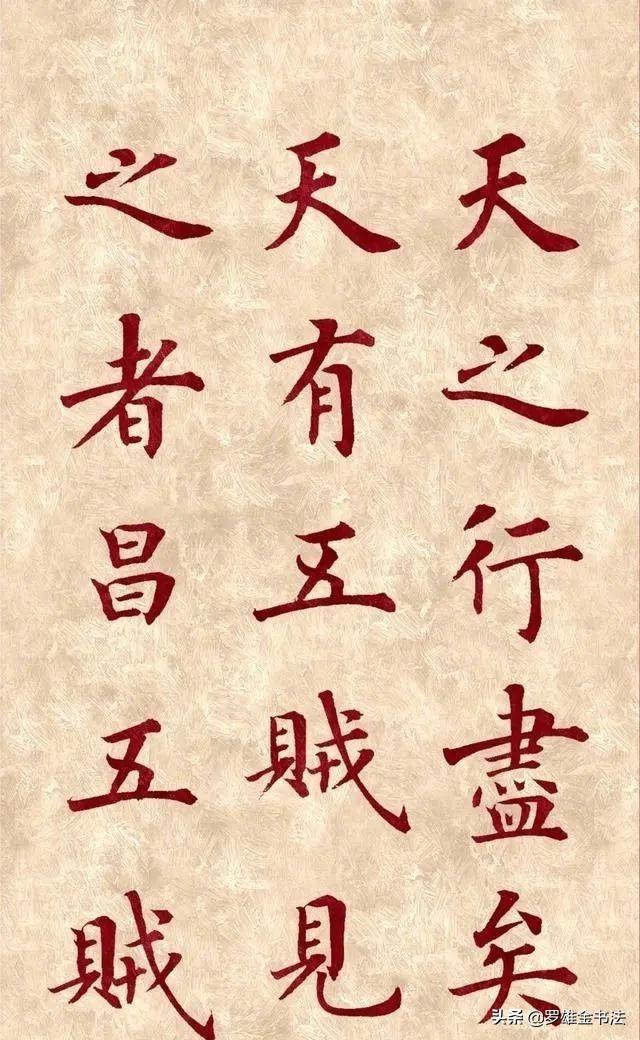 天之行盡矣
天有五賊見
之者昌五賊
头条@罗雄金书法